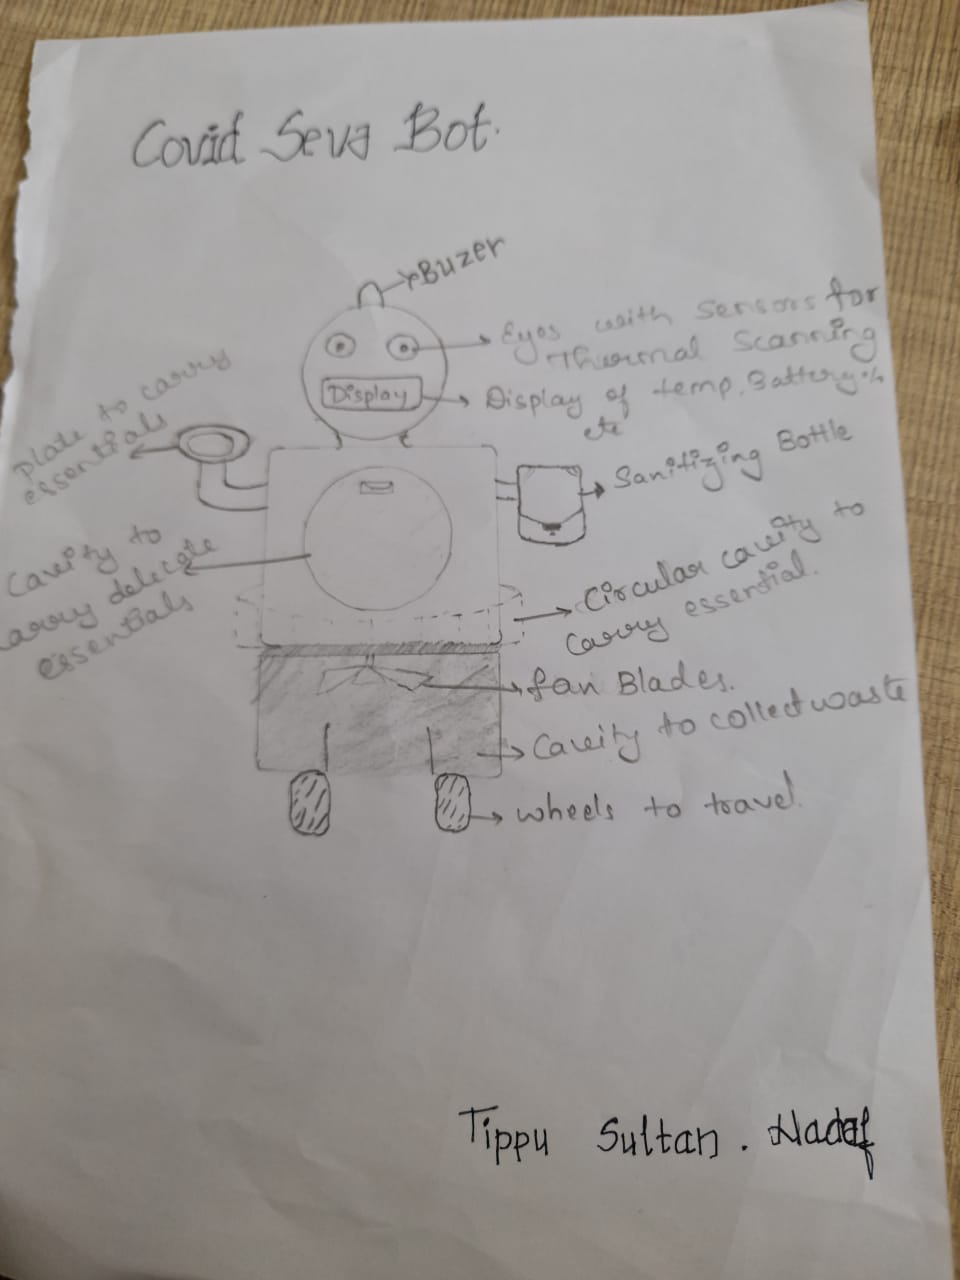 Covid Seva Bot.
Buzer
Eyes with sensors for
Thermal Scanning
Display
Display of temp, Battery %
etc
plate to carry
essentials
Sanitizing Bottle
Cavity to
carry delicate
essentials
Circular cavity to
carry essential.
fan Blades.
Cavity to collect waste
wheels to travel.
Tippu Sultan . Nadaf